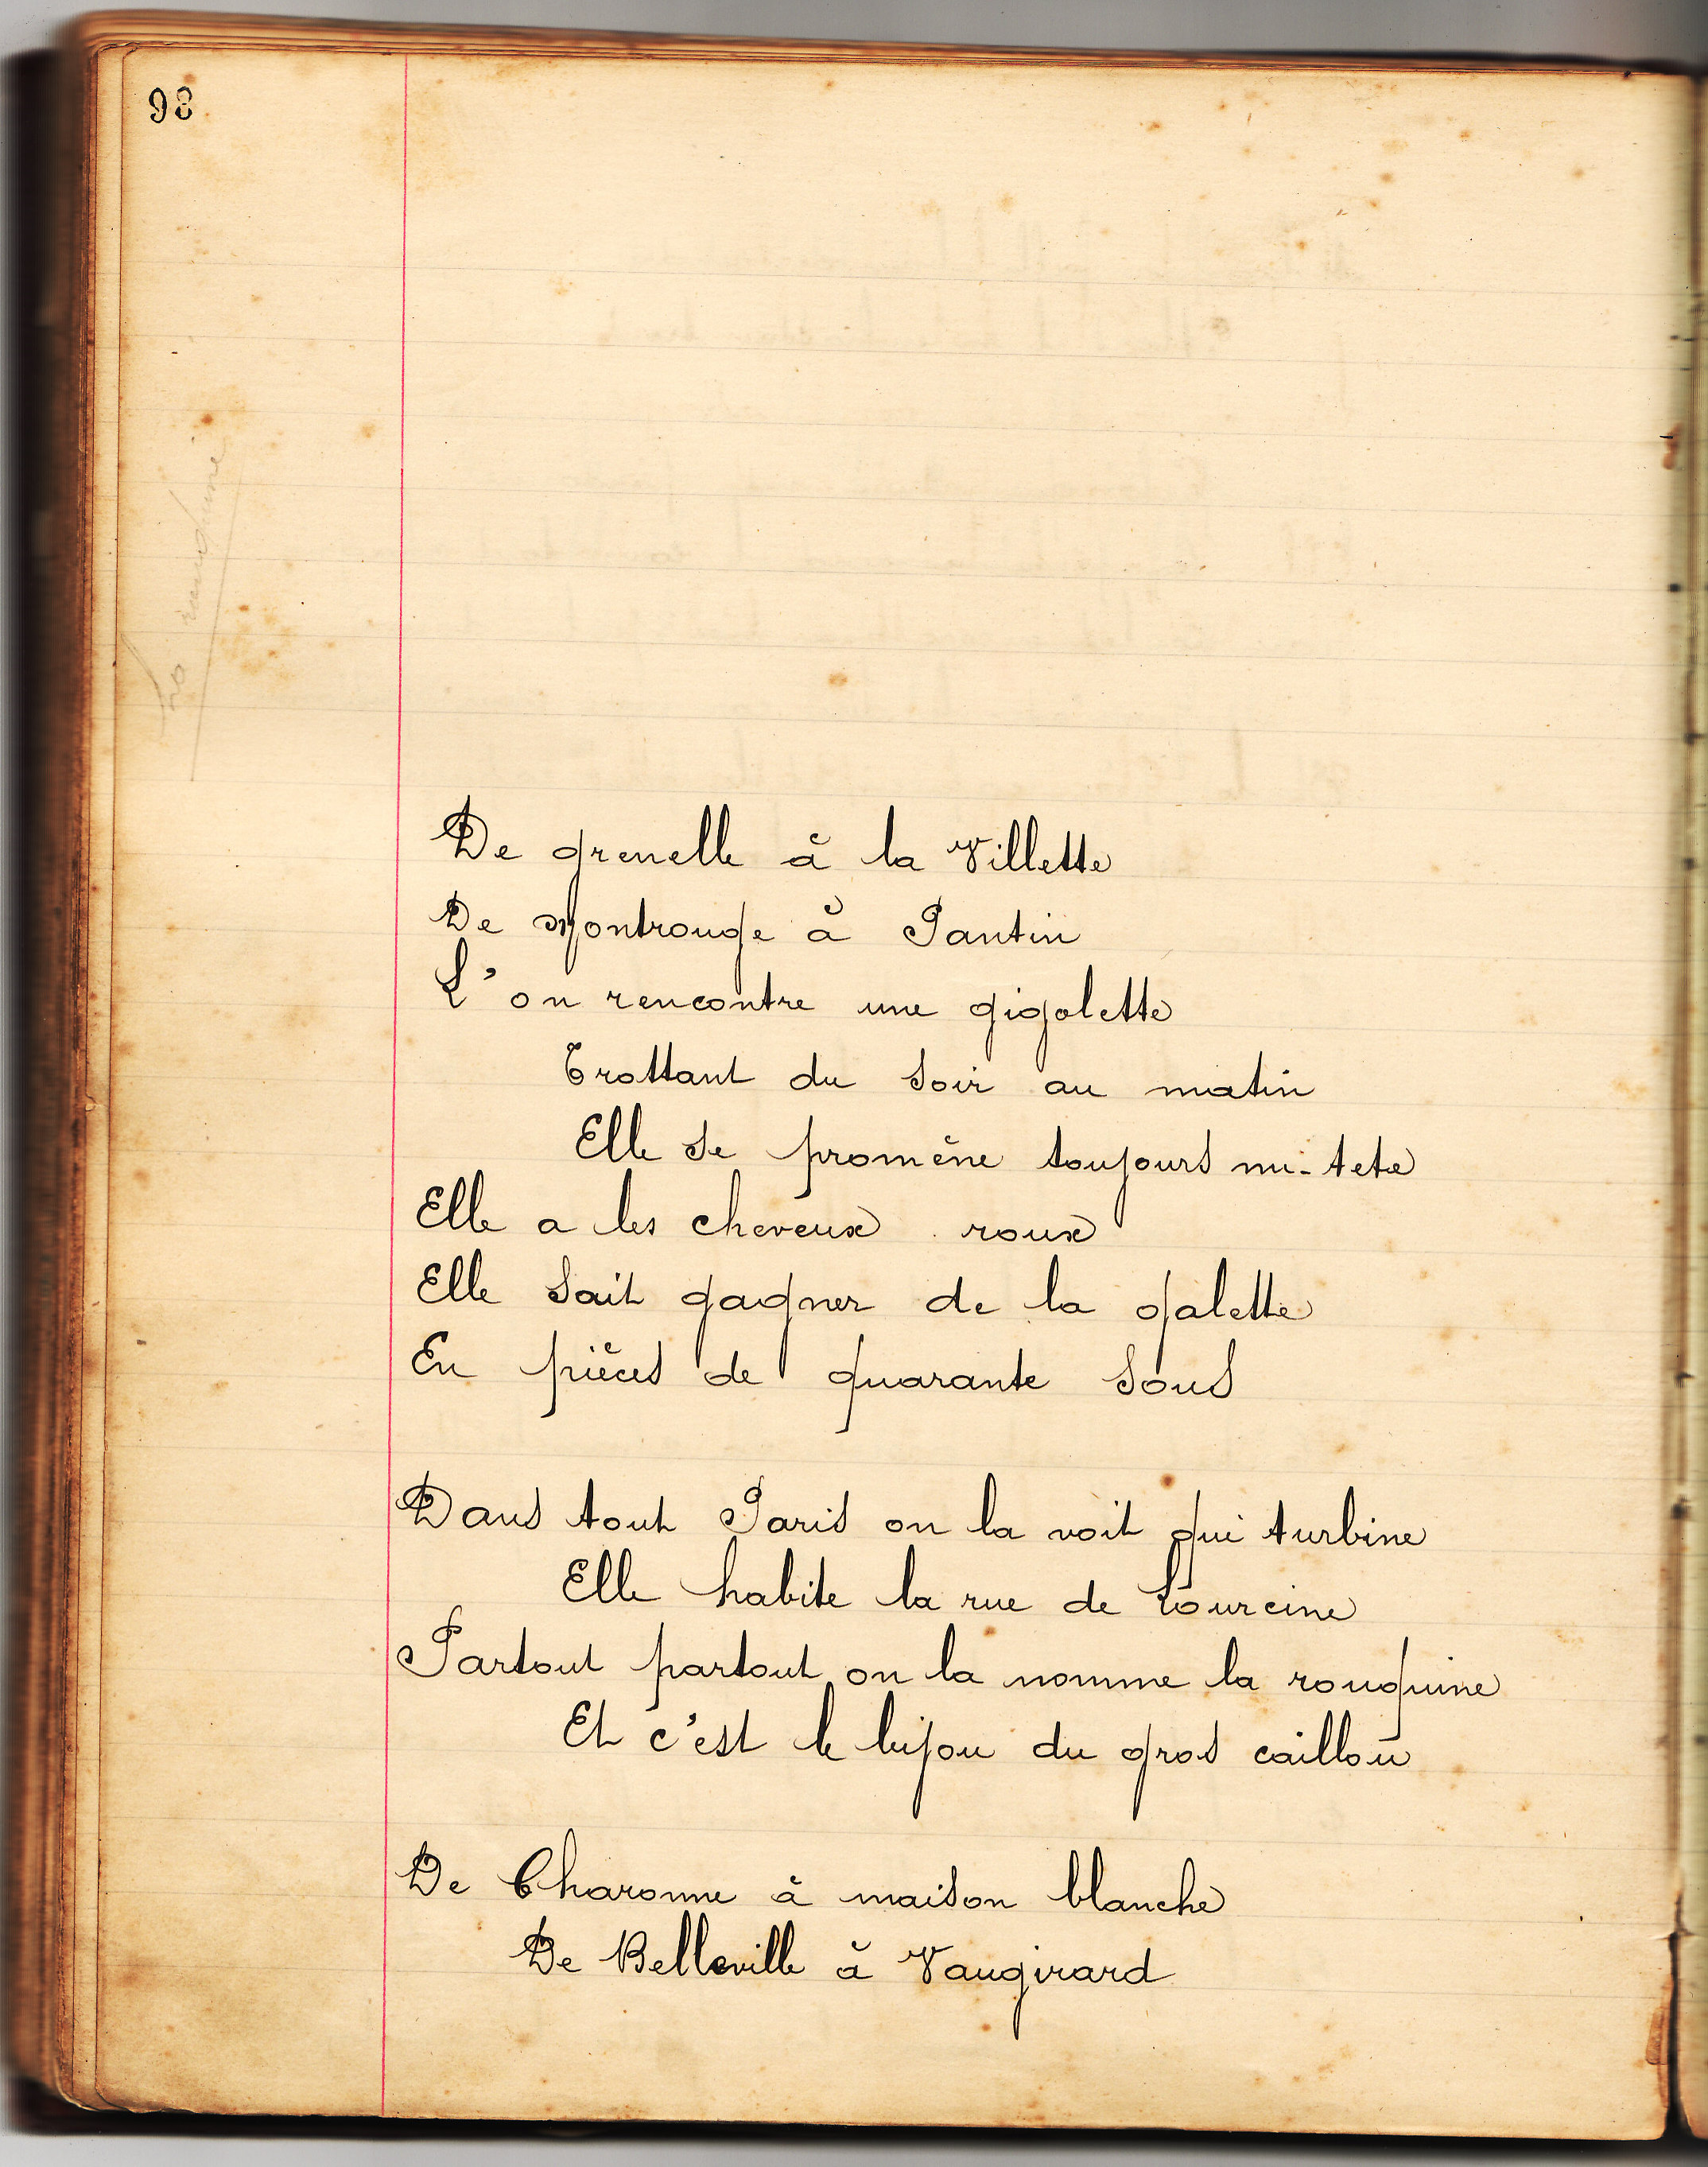 98
La rouquine
De grenelle à la Villette
De Montrouge à Pantin
L'on rencontre une gigolette
Trottant du soir au matin
Elle se promène toujours nu-tete
Elle a les cheveux roux
Elle sait gagner de la galette
En pièces de quarante sous
Dans tout Paris on la voit qui turbine
Elle habite la rue de Lourcine
Partout partout on la nomme la rouquine
Et c'est le bijou du gros caillou
De Charonne à maison blanche
De Belleville à Vaugirard